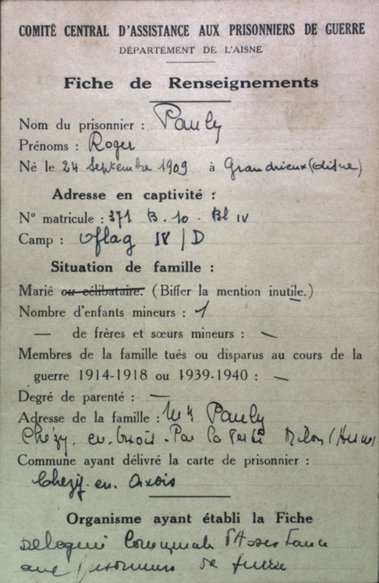 COMITÉ CENTRAL D'ASSISTANCE AUX PRISONNIERS DE GUERRE
DÉPARTEMENT DE L'AISNE
Fiche de Renseignements
Nom du prisonnier : Pauly
Prénoms : Roger
Né le 24 septembre 1909 à Grandrieux (Aisne)
Adresse en captivité :
N° matricule : 371 B. 10 - Bl IV
Camp : Oflag IV / D
Situation de famille :
Marié ou célibataire. (Biffer la mention inutile.)
Nombre d'enfants mineurs : 1
— de frères et sœurs mineurs : —
Membres de la famille tués ou disparus au cours de la
guerre 1914-1918 ou 1939-1940 : —
Degré de parenté : —
Adresse de la famille : Pauly
Chézy-en-Orxois - Par la Ferté Milon (Aisne)
Commune ayant délivré la carte de prisonnier :
Chézy-en-Orxois
Organisme ayant établi la Fiche
Délégué Communale d'Assistance
aux prisonniers de guerre